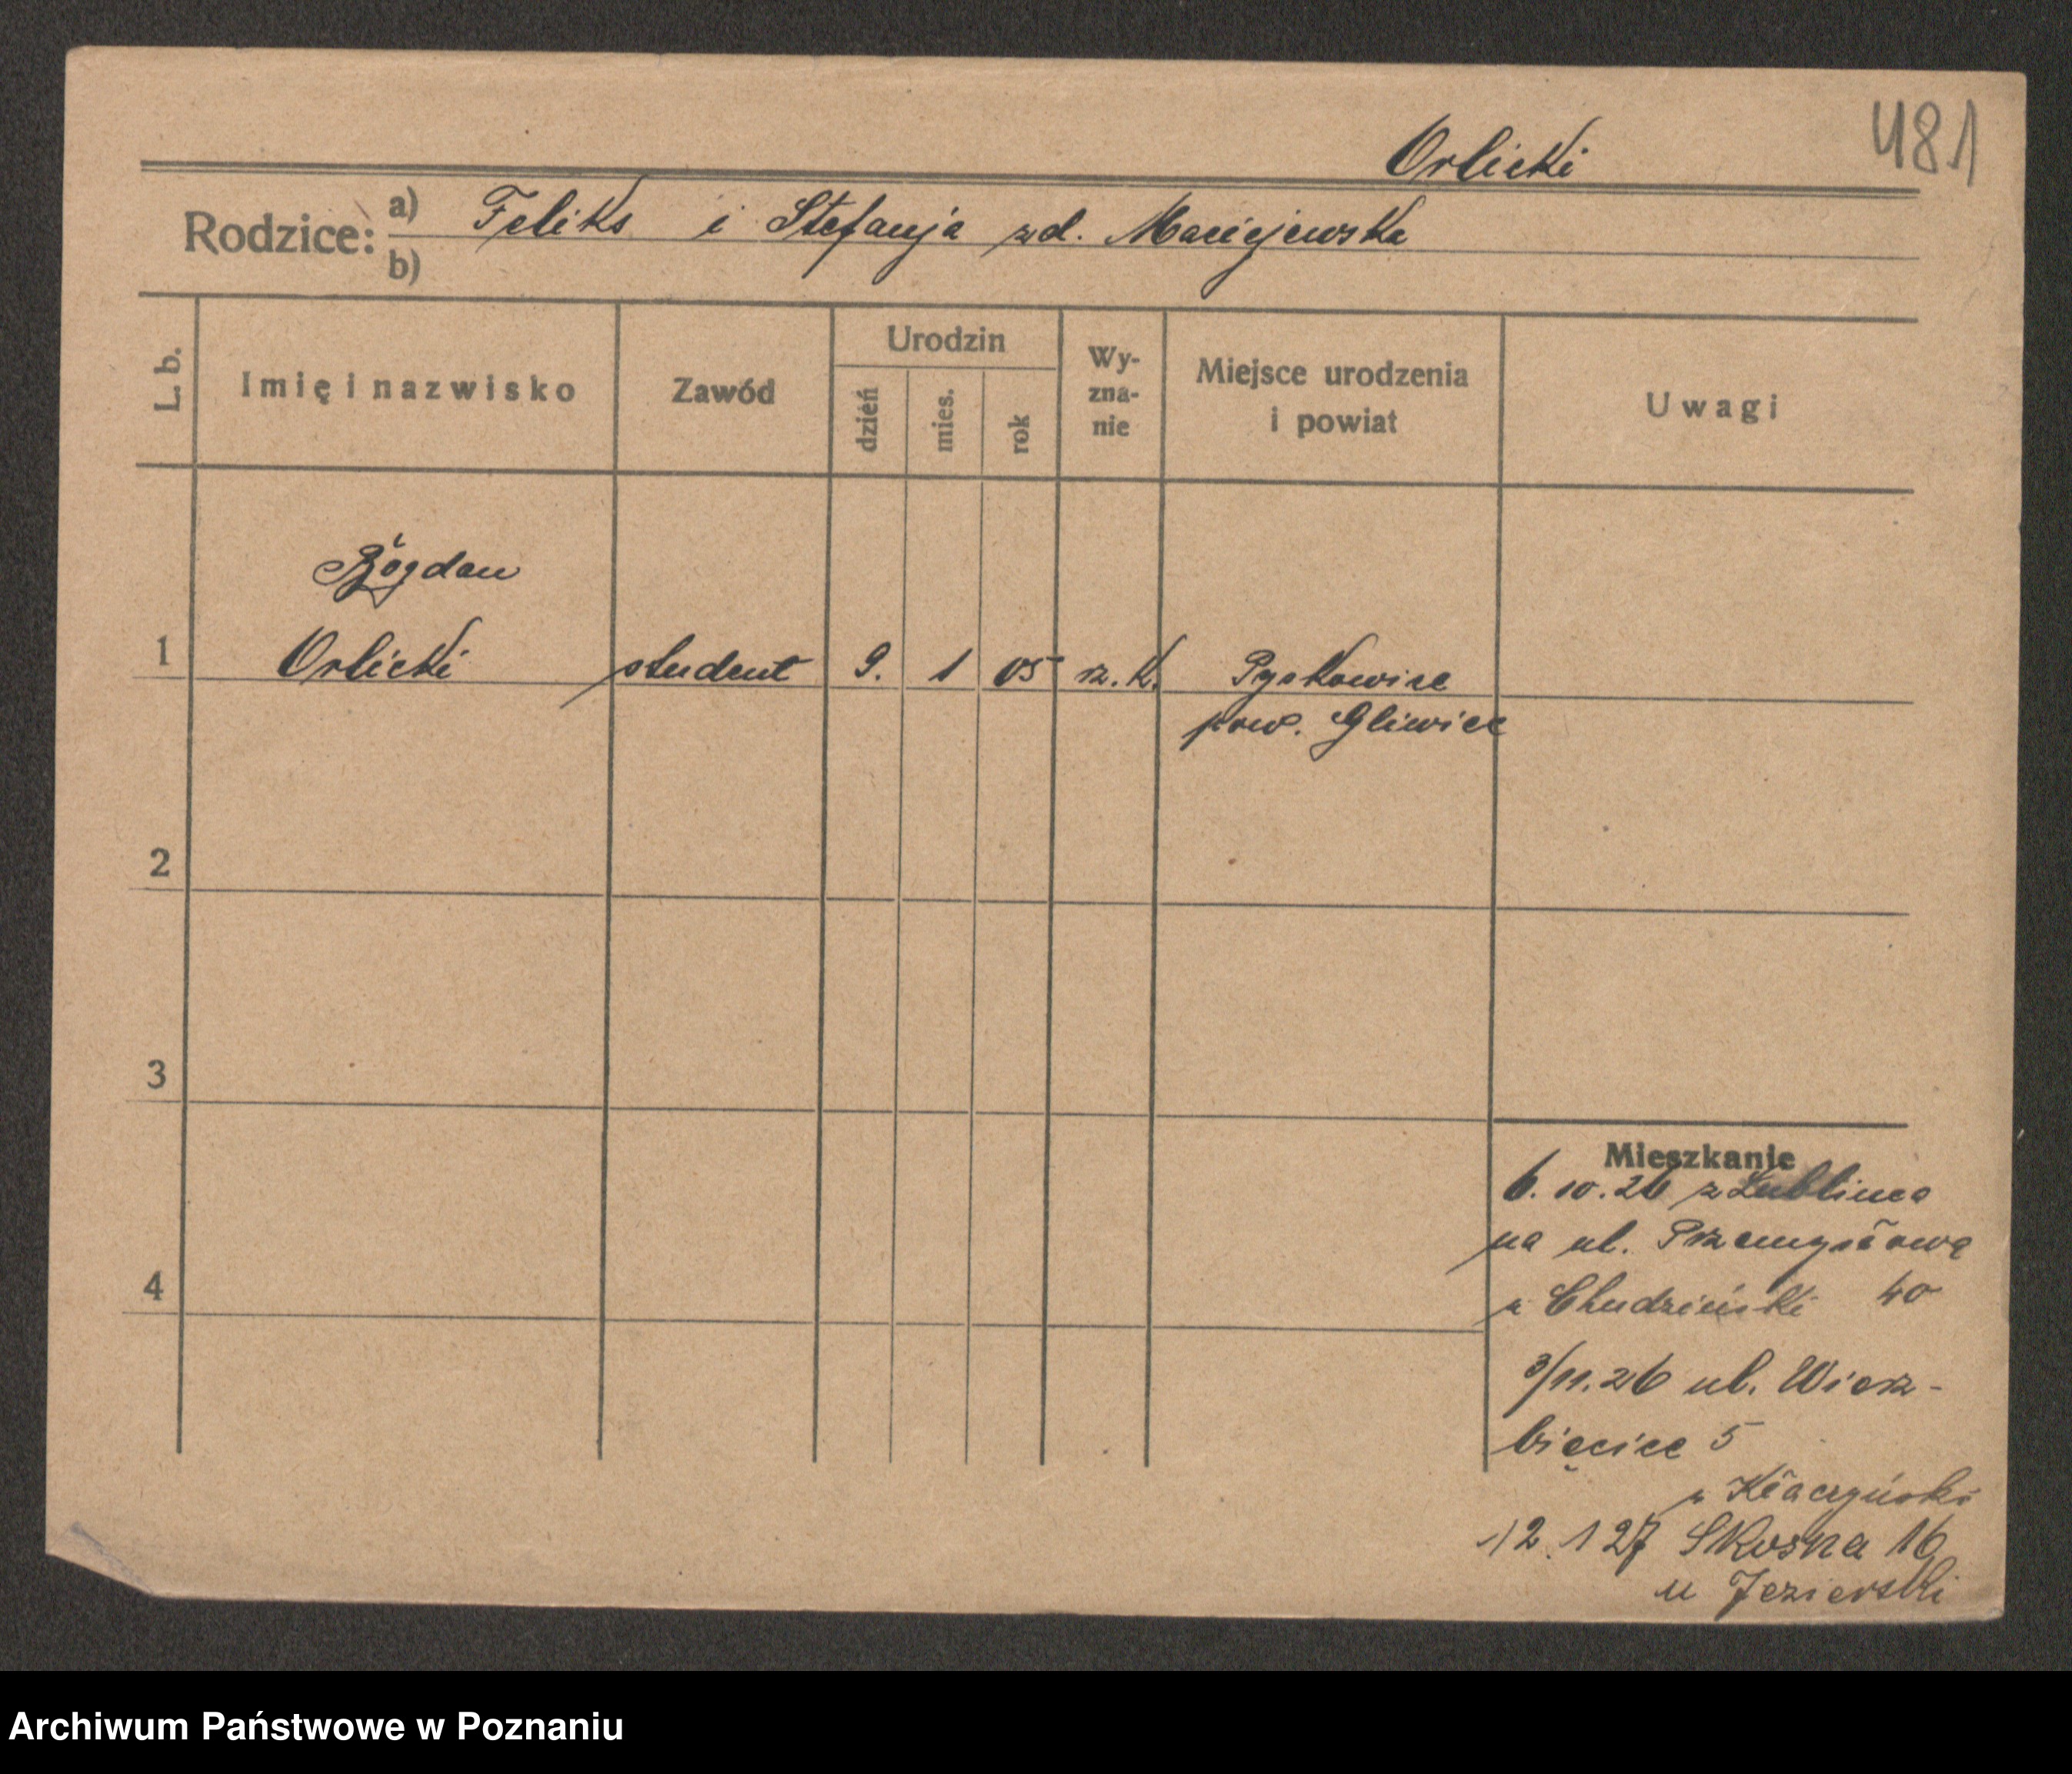 481
Orlicki
Rodzice: a) Feliks i Stefanja zd. Maciejewska
b)
L. b. Imię i nazwisko Zawód Urodzin dzień mies. rok Wy-zna-nie Miejsce urodzenia i powiat Uwagi
Bogdan
1 Orlicki student 9. 1 05 rz. k. Pyskowice
pow. Gliwice
2
3
Mieszkanie
6. 10. 26 z Lublina
na ul. Przemysłową
4 u Chudziński 40
3/11. 26 ul. Wierz-
bięcice 5
u Kłaczyński
12. 1 27 Skośna 16
u Jezierski
Archiwum Państwowe w Poznaniu